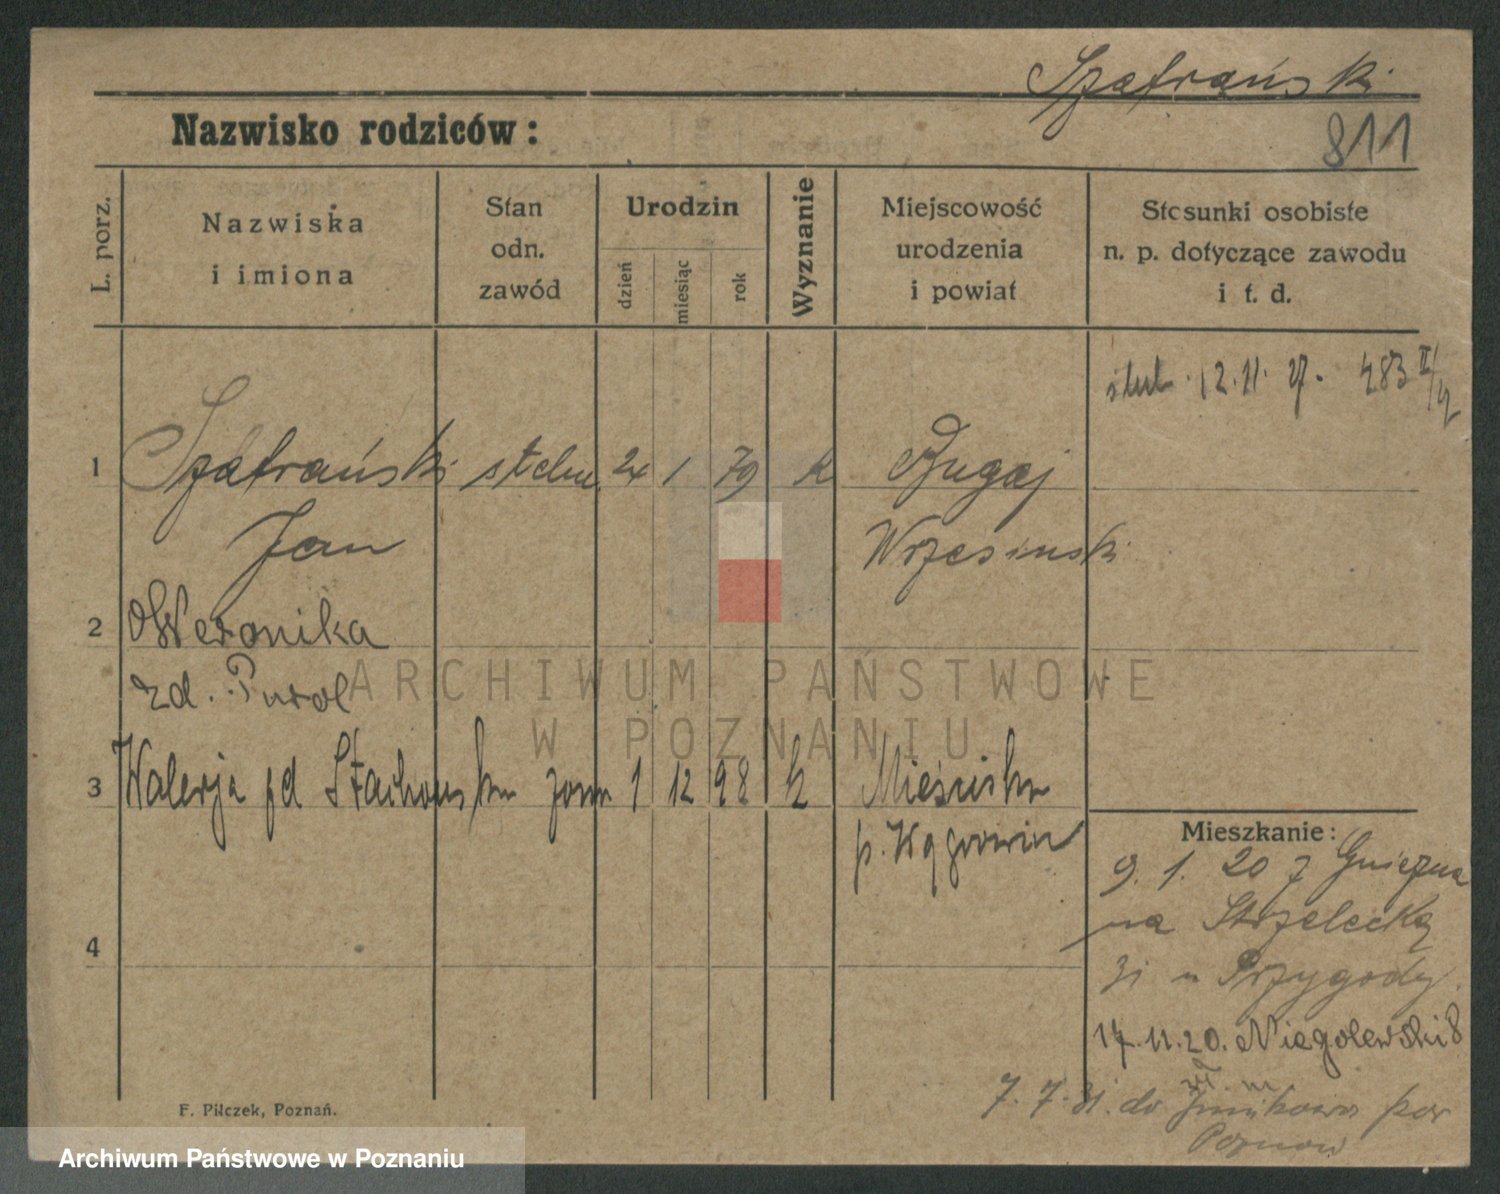 Szafrański
Nazwisko rodziców:
811
L. porz.
Nazwiska
i imiona
Stan
odn.
zawód
Urodzin
dzień
miesiąc
rok
Wyznanie
Miejscowość
urodzenia
i powiat
Stosunki osobiste
n. p. dotyczące zawodu
i t. d.
ślub 12.11.27. 483
1 Szafrański stelm. 24 1 79 k Bugaj
Jan Wrzesinski
2 Weronika
zd. Purol
3 Walerja fd Stachowska żona 1 12 98 k Mieścisko
p. Wągrowiec
4
Mieszkanie:
9. 1. 20 z Gniezna
na Strzelecką
31 u Przygody
17.11.20. Niegolewski 8
7. 7. 31. do Junikowa pow
Poznań
F. Pilczek, Poznań.
ARCHIWUM PAŃSTWOWE
W POZNANIU
Archiwum Państwowe w Poznaniu